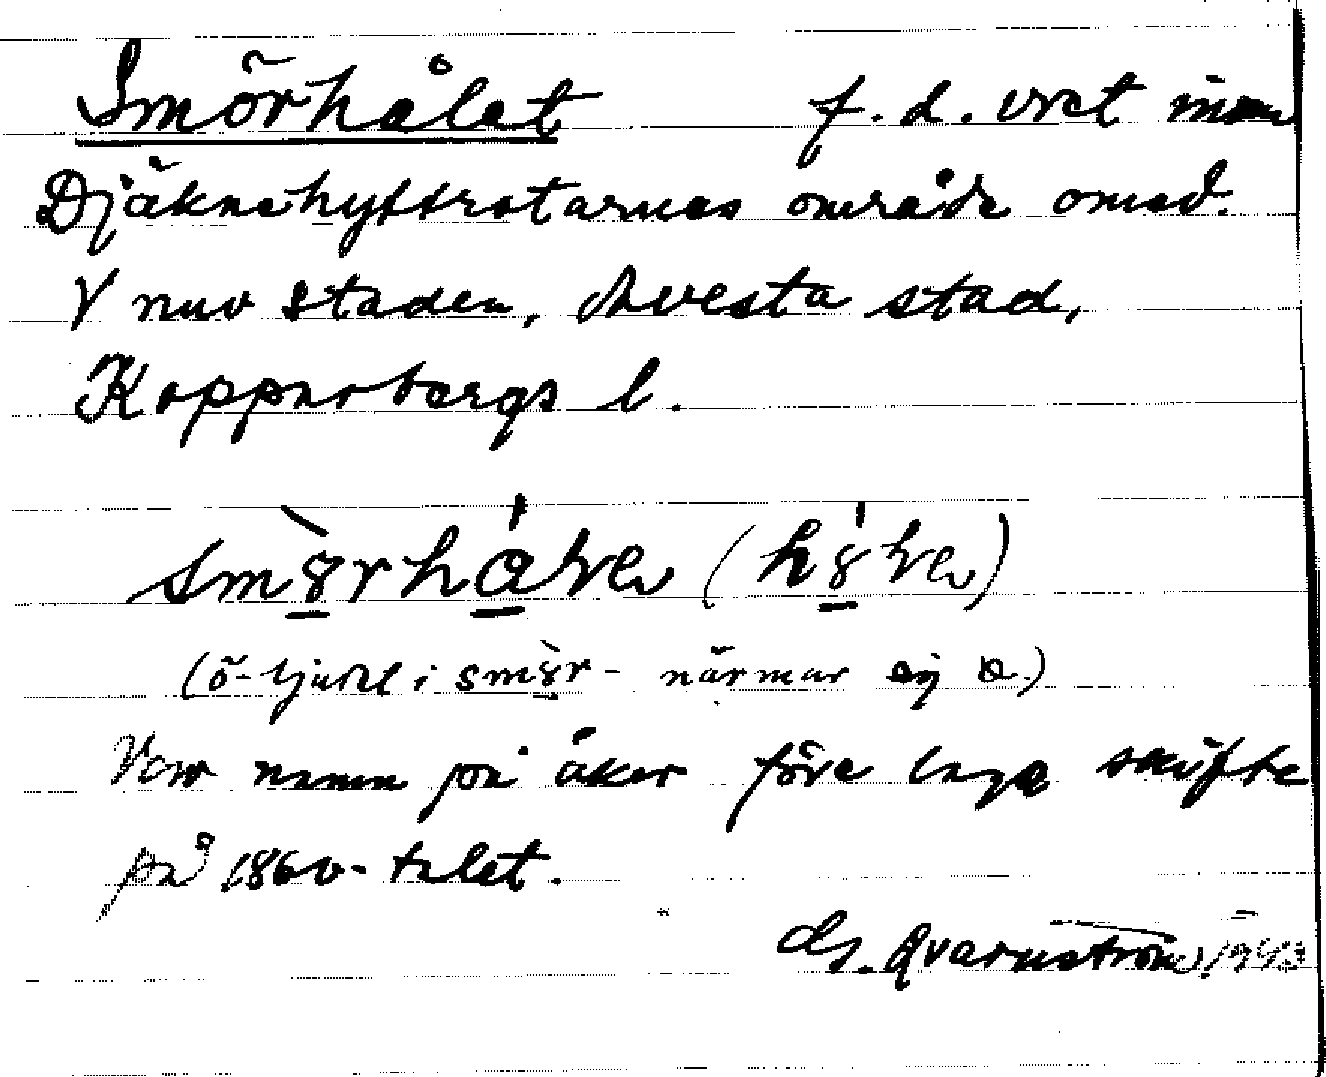 Smörhålet f. d. vret inom
Djäknehyttrotarnas område omed.
V nuv staden, Avesta stad,
Kopparbergs l.
(ö-ljudet i smȣ̀r- närmar sig a.)
Var namn på åker före laga skifte
på 1860-talet.
G. Qvarnström 1943